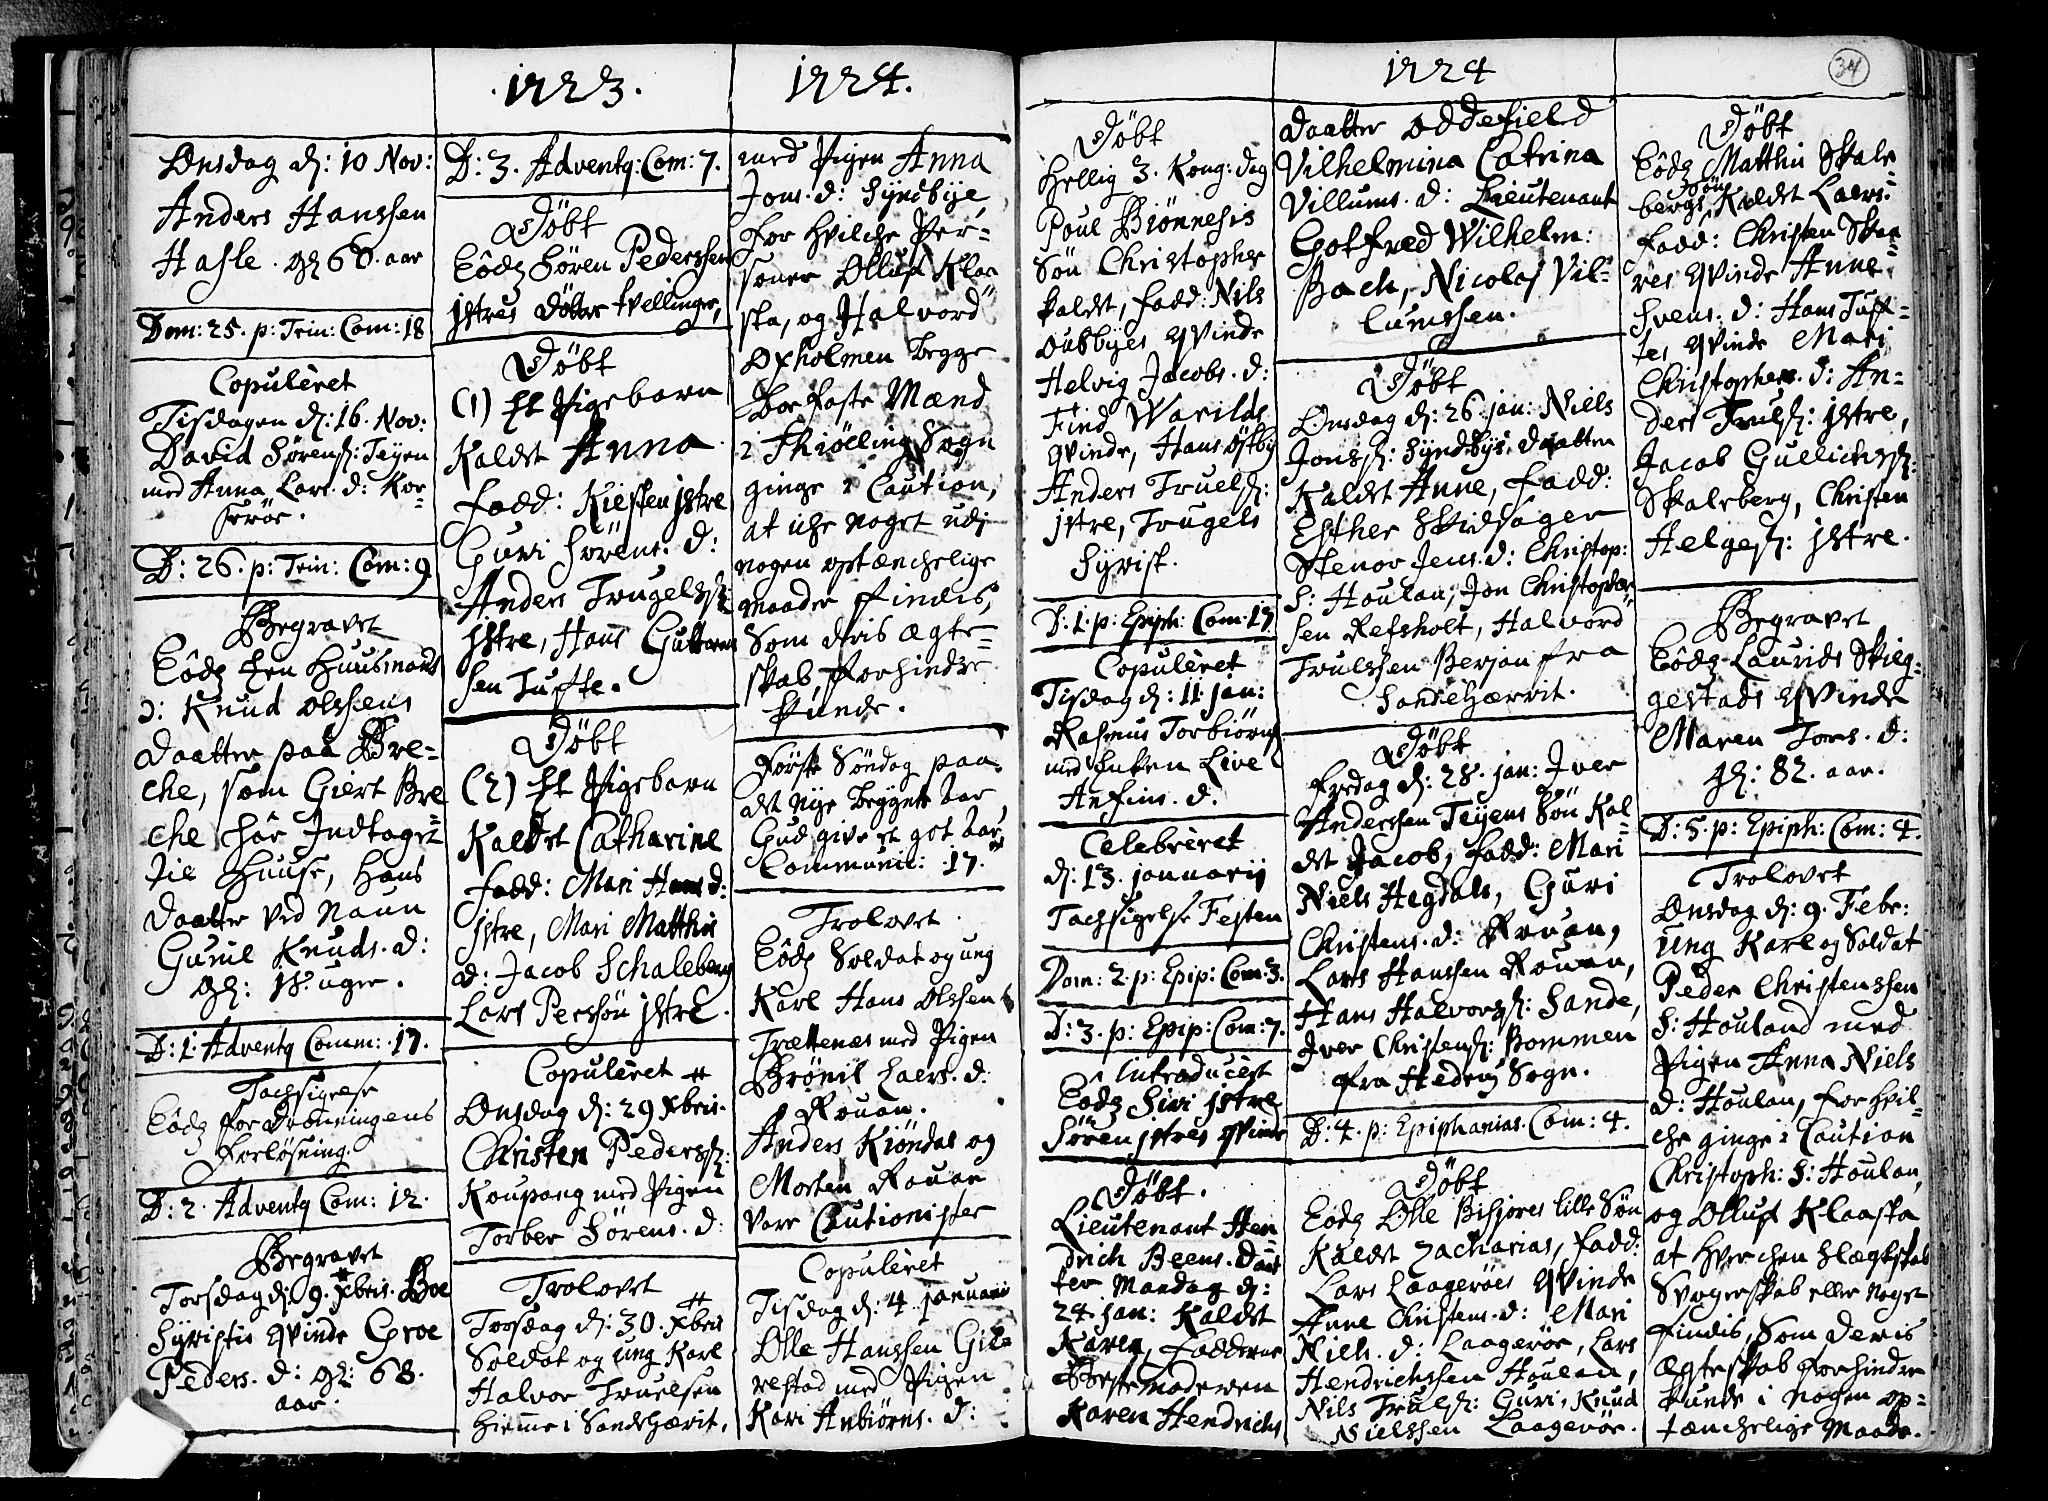 1723.
1724.
Onsdag d: 10 Nov:
Anders Hanssen
Hasle. gl 60. aar
Dom: 25. p: Trin: Com: 18
Copulêret
Tisdagen d: 16. Nov:
David Sørens: Teyen
med Anna Lars. d: Kor-
serøe.
D: 26. p: Trin: Com: 9
Begravet
Huusmands
d: Knud Olssens
daatter paa Bre-
che, som Giert Bre
che har Indtaget
til Huuse, hans
daatter ved Naun
Guruil Knuds. d:
gl: 18. uger.
D: 1. Advent Comm: 17.
Tachsigelse
for Dronningens
Forløsning.
D: 2. Advent Com: 12.
Begravet
Torsdag d: 9. Xbris. Boe
Syristis Qvinde Groe
Peders. d: gl: 68.
aar.
D: 3. Advent: Com: 7.
Døbt
Søren Pederssen
Istres døttre tvellinger,
Døbt
(1) Et Pigebarn
Kaldet Anna
Fadd: Kiesten Istre
Guri Sørens. d:
Anders Trugelss:
Istre, Hans Guttorm
sen Tuffte.
Døbt
(2) Et Pigebarn
Kaldet Catharine
Fadd: Mari Hans d:
Istre, Mari Matthis
d: Jacob Schaleberg
Lars Perssøn Istre.
Copulêret
Onsdag d: 29 Xbris.
Christen Pederss:
Koupang med Pigen
Torber Sørens. d:
Trolovet
Torsdag d: 30. Xbris
Soldat og ung Karl
Halvor Truelsen
Hiemme i Sandehærit,
med Pigen Anna
Jons. d: Syndbye,
For hvilche Per-
soner Olluf Klaa
ska, og Halvord
Oxholmen begge
Boe faste Mænd
i Thiølling Sogn
ginge i Caution,
at iche noget udj
nogen optænchelige
maader findis,
Som deris Ægte-
skab, forhindre
kunde.
Første Søndag paa
det Nye begynte Aar
Gud give et got Aar
Communic: 17.
Trolovet.
Soldat og ung
Karl Hans Olssen
Trættenæs med Pigen
Brønil Laers. d:
Rouan.
Anders Kiøndal og
Morten Rouan
vare Cautionister
Copulêret
Tisdag d: 4. januarii
Olle Hanssen Gil-
restad med Pigen
Kari Anbiørns. d:
1724
34
Døbt
Hellig 3. Kong: dag
Poul Biønnesis
Søn Christopher
kaldet, Fadd: Nils
Oubbyes Qvinde
Helvig Jacobs. d:
Find Warilds
Qvinde, Hans Østby
Anders Truels:
Istre, Trugels
Syrist.
D: 1. p: Epiph: Com: 17
Copulêret
Tisdag d: 11 jan:
Rasmus Torbiørns
med Enken Live
Anfins. d.
Celebrêret
d: 13. januarij
Tachsigelse Festen
Dom: 2. p: Epip: Com: 3.
D: 3. p: Epip: Com: 7.
Introducêrt
Siri Istre
Søren Istres Qvinde
Døbt.
Lieutenant Hen
drich Beens. Daat
ter Mandag d:
24. jan: Kaldet
Karen, Fadderne
Bestemoderen
Karen Hendrichs
daatter Oddefield
Vilhelmina Catrina
Villums. d: Lieutenant
Gotfred Wilhelm:
Bach, Nicolas Vil-
lumssen.
Døbt
Onsdag d: 26. jan: Niels
Jonss: Syndbys. daatter
Kaldet Anne, Fadd:
Esther Skidsager
Stenor Jens. d: Christop:
S: Houlan, Jon Christopher
sen Refsholt, Halvord
Trulssen Berjan fra
Sandehærrit.
Døbt
Fredag d: 28. jan: Iver
Anderssen Teyens Søn Kal
det Jacob, Fadd: Mari
Niels Hegdals, Guri
Christens. d: Rouan,
Lars Hanssen Rouan,
Hans Halvorss: Sande,
Iver Christens: Bommen
fra Hedrum Sogn.
D: 4. p: Epiphanias. Com: 4.
Døbt
Olle Bisjøres lille Søn
Kaldet Zacharias, Fadd:
Lars Laagerøes Qvinde
Anne Christens. d: Mari
Niels. d: Laagerøe, Lars
Hendrichssen Houlan,
Nils Truls: Guri, Knud
Nielssen Laagerøe.
Døbt
Matthis Skale
bergs Søn Kaldet Laers:
Fadd: Christen Skaa
res Qvinde Anne
Svens. d: Hans Tuff-
tes Qvinde Mari
Christophers. d: An-
ders Truls: Istre,
Jacob Gullichss:
Skaleberg, Christen
Helges: Istre.
Begravet
Laurids Skieg-
gestads Qvinde
Maren Tores. d:
gl: 82. aar.
D: 5. p: Epiph: Com: 4.
Trolovet
Onsdag d: 9. Febr:
ung Karl og Soldat
Peder Christenssen
S: Houland med
Pigen Anna Niels
d: Houlan, for hvil-
che ginge i Caution
Christoph: S: Houlan,
og Olluf Klaaska
at hverchen Slægtskab
Svogerskab eller noget
findis, Som deris
Ægteskab forhindre
kunde i nogen op-
tænchelige Maade.